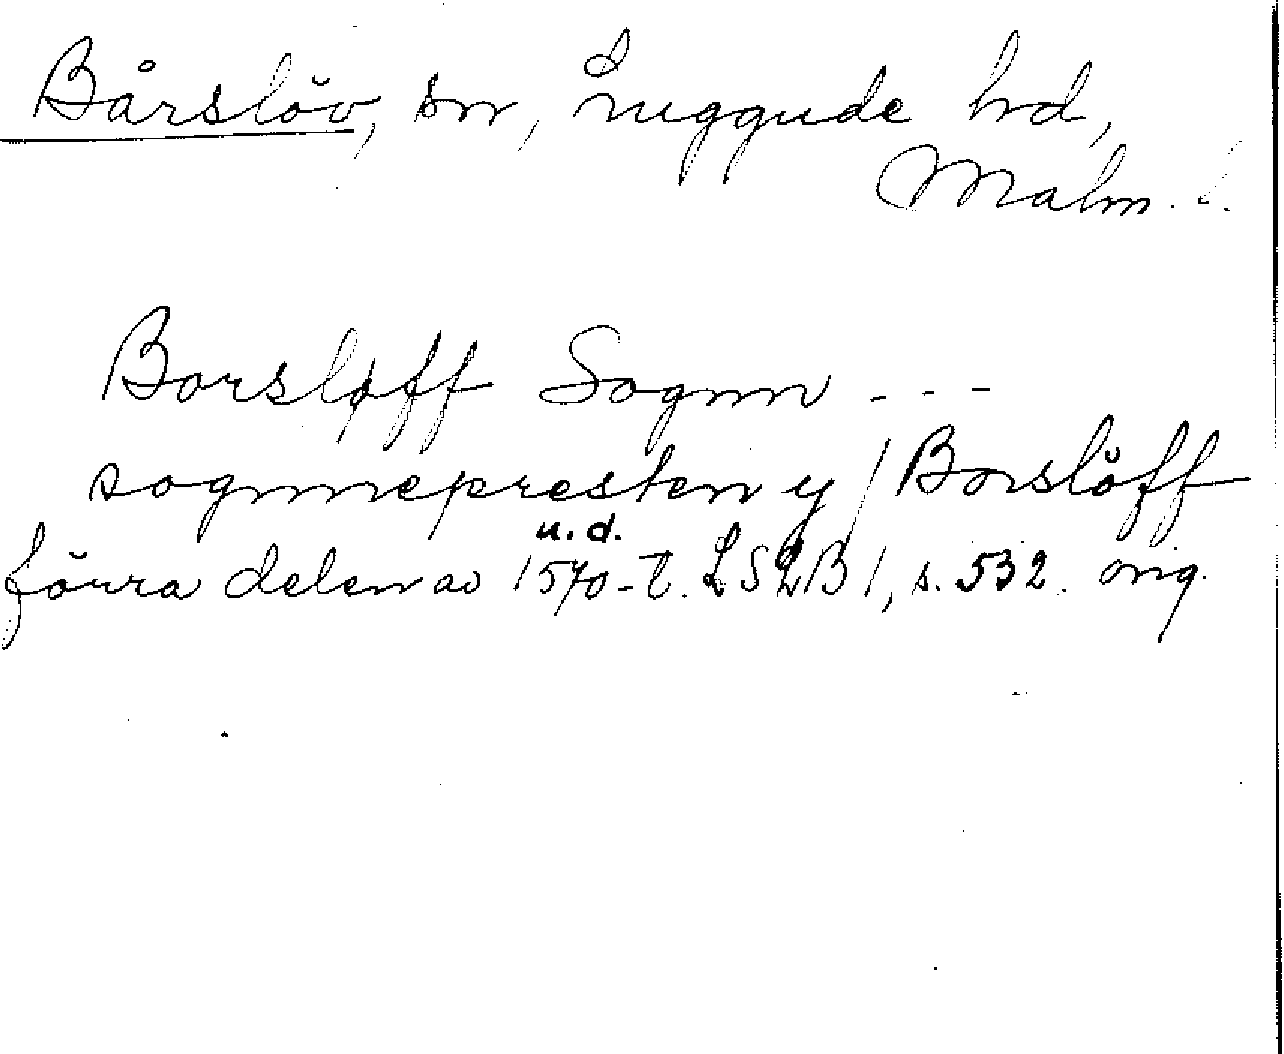 Bårslöv, sn, Luggude hd,
Malm. l.
Borsløff Sognn - - -
sognnepresten y / Borslöff
u. d.
förra delen av 1570-t. LSLB 1, s. 532. orig.